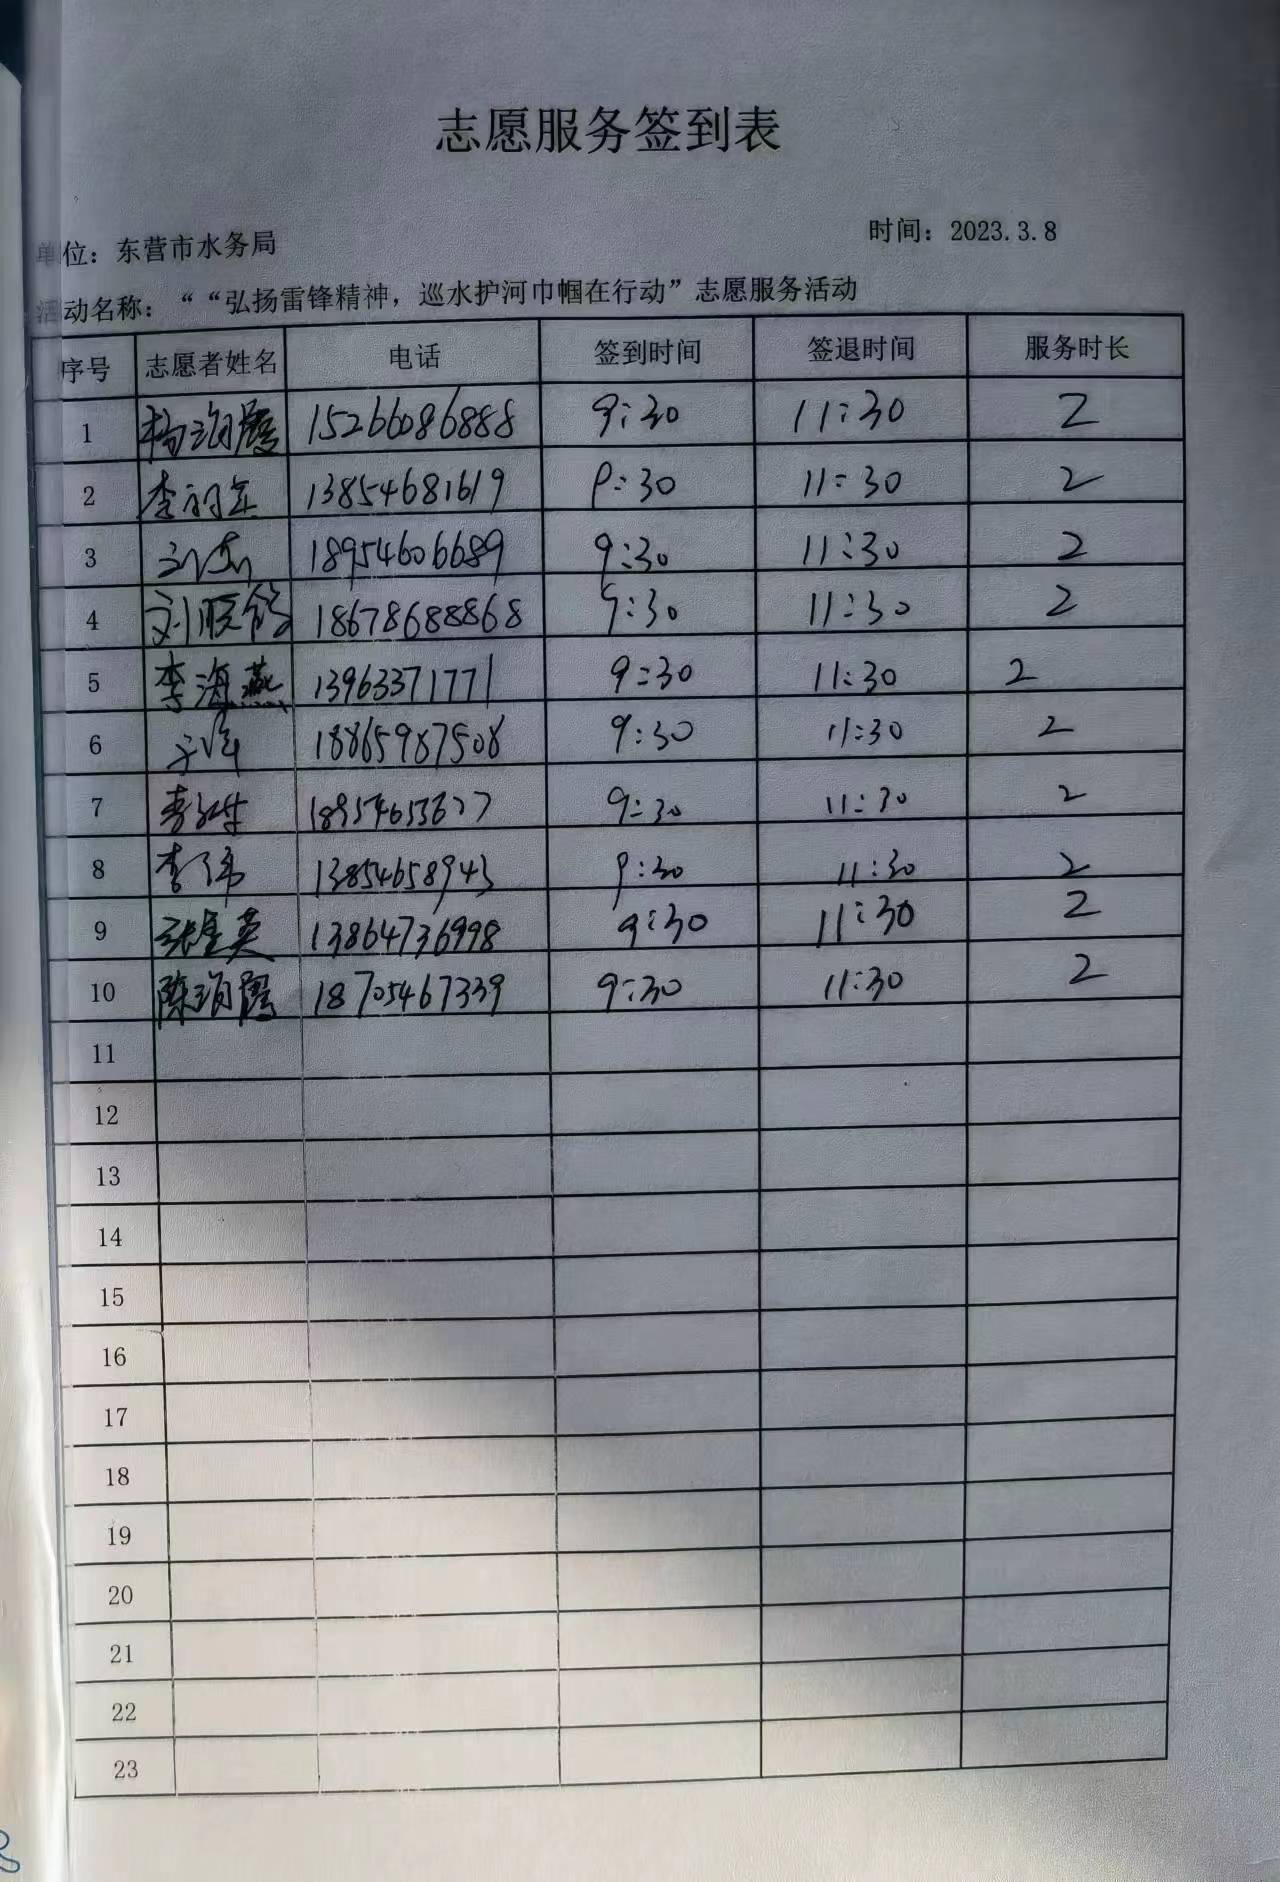 志愿服务签到表
单位：东营市水务局 时间：2023.3.8
活动名称：““弘扬雷锋精神，巡水护河巾帼在行动”志愿服务活动
序号 志愿者姓名 电话 签到时间 签退时间 服务时长
1 15266086888 9:30 11:30 2
2 13854681619 9:30 11:30 2
3 18954606689 9:30 11:30 2
4 刘晓 18678688868 9:30 11:30 2
5 李海燕 13963371771 9:30 11:30 2
6 18865987508 9:30 11:30 2
7 李 9:30 11:30 2
8 李伟 13854658943 9:30 11:30 2
9 张 英 13864736998 9:30 11:30 2
10 陈 霞 18705467339 9:30 11:30 2
11
12
13
14
15
16
17
18
19
20
21
22
23